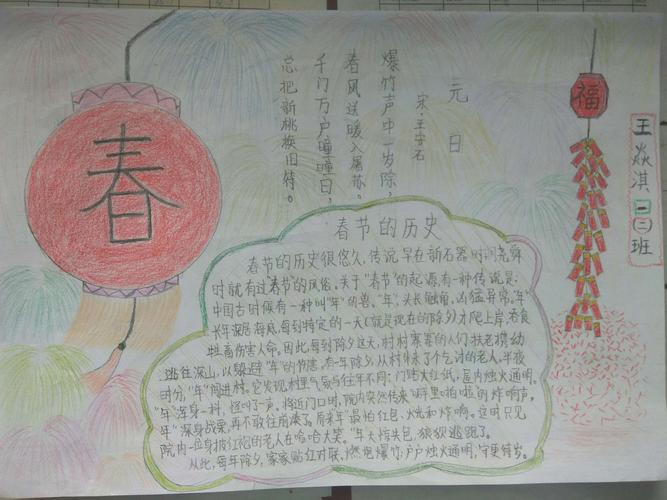 春
元日
宋·王安石
爆竹声中一岁除，
春风送暖入屠苏。
千门万户曈曈日，
总把新桃换旧符。
福
王焱淇一(二)班
春节的历史
春节的历史很悠久，传说早在新石器时尧舜
时就有过"春节"的风俗。关于"春节"的起源有一种传说是：
中国古时候有一种叫"年"的兽。"年"，头长触角，凶猛异常。"年"
长年深居海底，每到特定的一天（就是现在的除夕）才爬上岸，吞食
牲畜伤害人命。因此，每到除夕这天，村村寨寨的人们扶老携幼
逃往深山，以躲避"年"的伤害。有一年除夕，从村外来了个乞讨的老人。半夜
时分，"年"闯进村。它发现村里气氛与往年不同：门贴大红纸，屋内烛火通明。
"年"浑身一抖，怪叫了一声。将近门口时，院内突然传来"砰里啪啦"的炸响声，
"年"浑身战栗，再不敢往前凑了。原来"年"最怕红包、火光和炸响。这时只见
院内一位身披红袍的老人在哈哈大笑。"年"大惊失色，狼狈逃跑了。
从此，每年除夕，家家贴红对联，燃放爆竹，户户烛火通明，守更待岁。